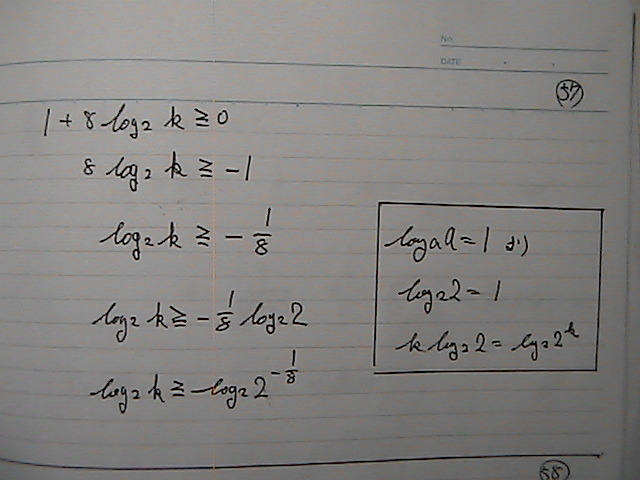 No.
DATE
57
1 + 8 log₂ k ≧ 0
8 log₂ k ≧ -1
log₂ k ≧ - 1/8
log₂ k ≧ - 1/8 log₂ 2
log₂ k ≧ -log₂ 2^(-1/8)
logₐ a = 1 より
log₂ 2 = 1
k log₂ 2 = log₂ 2^k
58